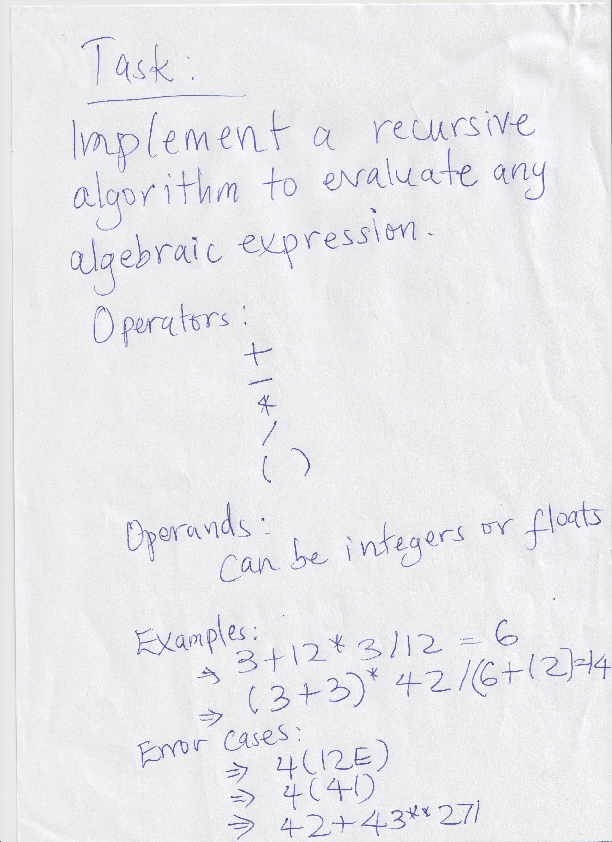 Task:
Implement a recursive
algorithm to evaluate any
algebraic expression.
Operators:
+
-
*
/
( )
Operands:
can be integers or floats
Examples:
→ 3+12*3/12 = 6
⇒ (3+3)* 42/(6+12)=14
Error cases:
⇒ 4(12E)
⇒ 4(41)
⇒ 42+43**271